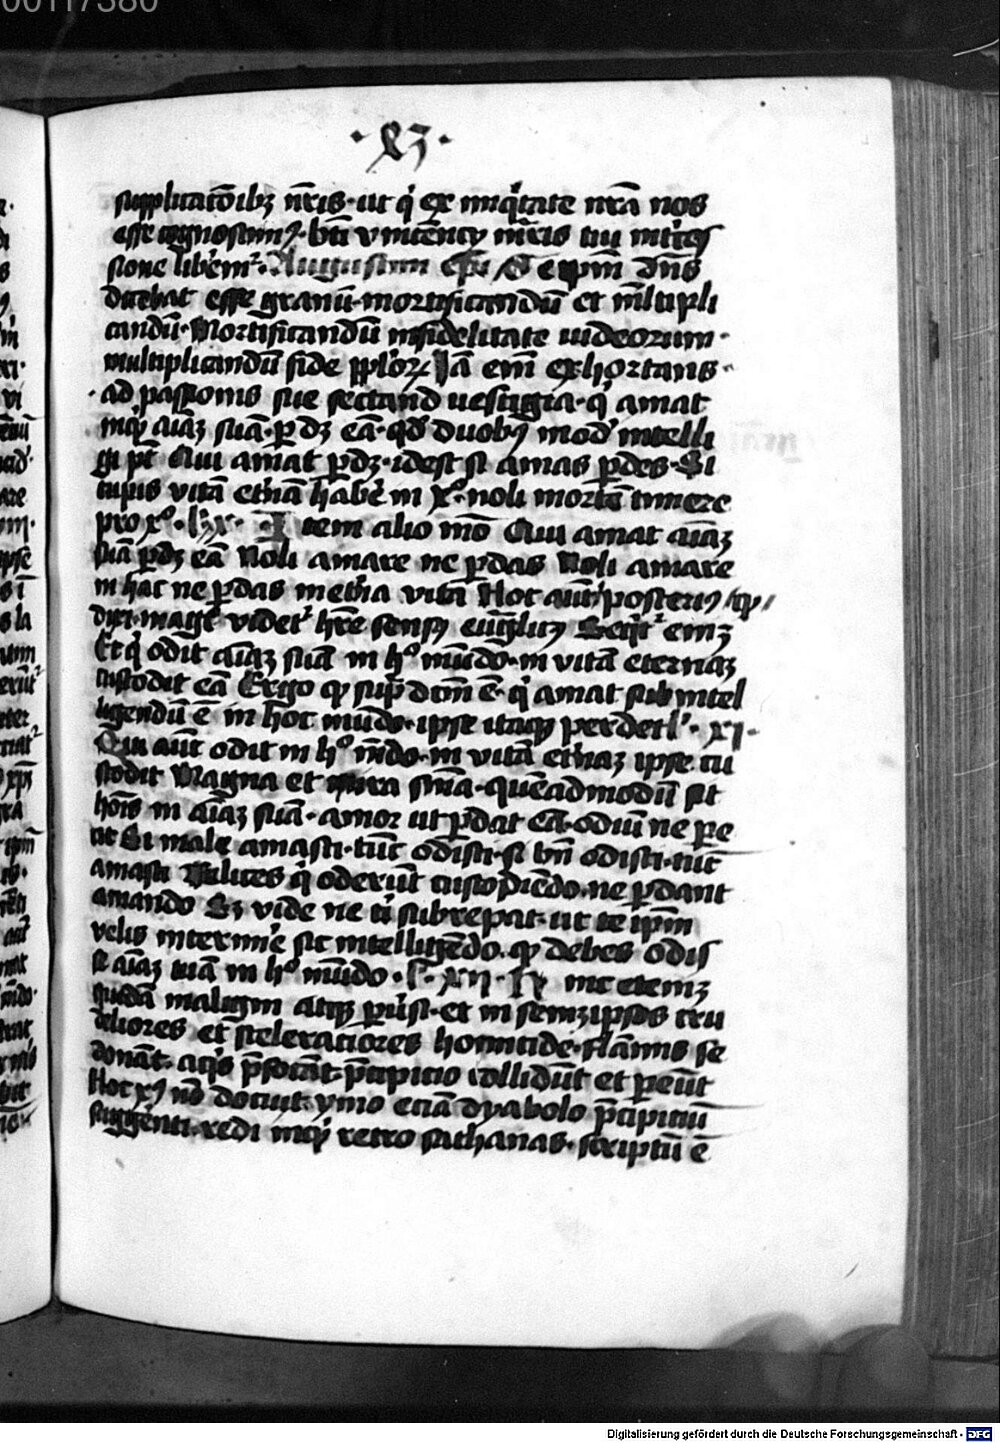 00117380
supplicatōibꝫ nr̄is · ut qͥ ex iniqͥtate nrā nos
esse cognoscimꝰ · bt̄i vincēncij mr̄is tui int̄ces
sione liberem² · Augustinꝰ ep̄s Se ip̄m dn̄s
dicebat esse granū mortificandū et ml̄tipli
candū · Mortificandū infidelitate iudeorum ·
multiplicandū fide pplōꝝ Iā em̄ exhortans
ad passionis sue sectand vestigia · qͥ amat
inqͥ aīaꝫ suā · ꝑdꝫ eā · qd̓ duobꝰ mod̓ intelli
gi pt̄ Qui amat ꝑdꝫ · idest si amas ꝑdes · Si
cupis vitā et̓nā habe in xº · noli mortē timere
pro xº · lx · Item alio mō Qui amat aīaꝫ
suā ꝑdꝫ eā Noli amare ne ꝑdas Noli amare
in hac ne ꝑdas in et̓na vitā Hoc aūt posteriꝰ qͩ
dixi · magͥ videt² hr̄e sensꝰ euāgͥlicꝰ Seqͥt² emꝫ
Et qͥ odit aīaꝫ suā in hº mūdo · in vitā eternaꝫ
custodit eā Ergo qͩ sup̄ dc̄m ē · qͥ amat subintel
ligendū ē in hoc mūdo · ipse itaqꝫ perdet l' · xi ·
Qui aūt odit in hº mūdo · in vitā et̓naꝫ ipse cu
stodit Magna et mira snīa · quēadmodū sit
hoīs in aīaꝫ suā · amor ut ꝑdat eā · odiū ne pe
at Si male amasti · tūc odisti · si bn̄ odisti · tūc
amasti Felices qͥ oderūt custodiēdo · ne ꝑdant
amando Sꝫ vide ne tͥ subrepat · ut te ip̄m
velis interim̄e sic intelligēdo · qͩ debes odis
se aīaꝫ tuā in hº mūdo · l' · xii · Hinc etemꝫ
quidā maligni atqꝫ ꝑu̓si · et in semꝫipsos cru
deliores et sceleratiores homicide · flāmis se
donāt · aqͥs p̄focāt · p̄cipitio collidūt et pereūt
Hoc xꝰ nō docuit · ymo eciā dyabolo p̄cipiciū
suggerēti · redi inqͥ retro sathanas · scriptū ē
Digitalisierung gefördert durch die Deutsche Forschungsgemeinschaft - DFG